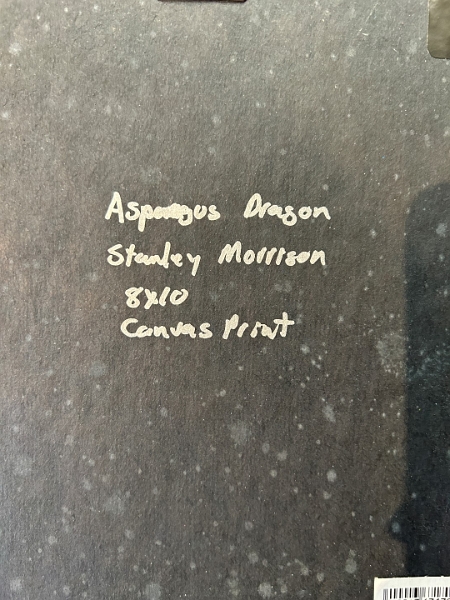 Asparagus Dragon
Stanley Morrison
8x10
Canvas Print